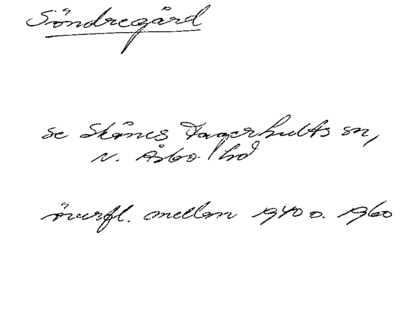 Söndregård
se Skånes Fagerhults sn,
N. Åsbo hd
överfl. mellan 1940 o. 1960